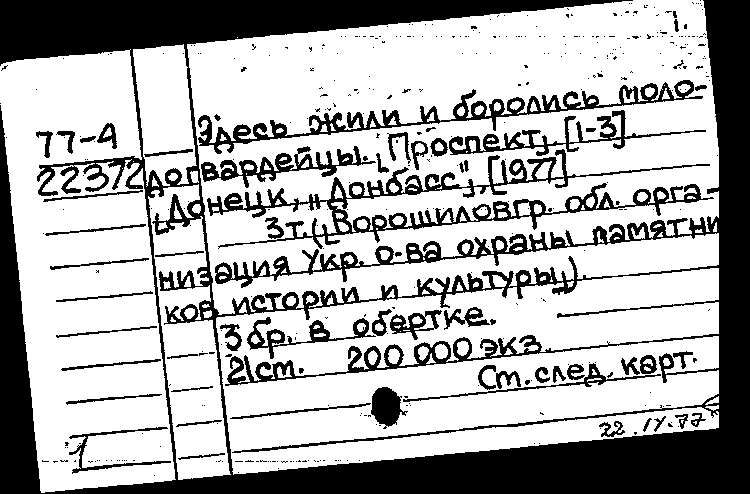 1.
77-4 Здесь жили и боролись моло-
22372 догвардейцы. [Проспект]. [1-3].
[Донецк, „Донбасс"], [1977].
3 т. ([Ворошиловгр. обл. орга-
низация Укр. о-ва охраны памятни
ков истории и культуры]).
3 бр. в обертке.
21 см. 200 000 экз.
См. след. карт.
1 22.IV.77